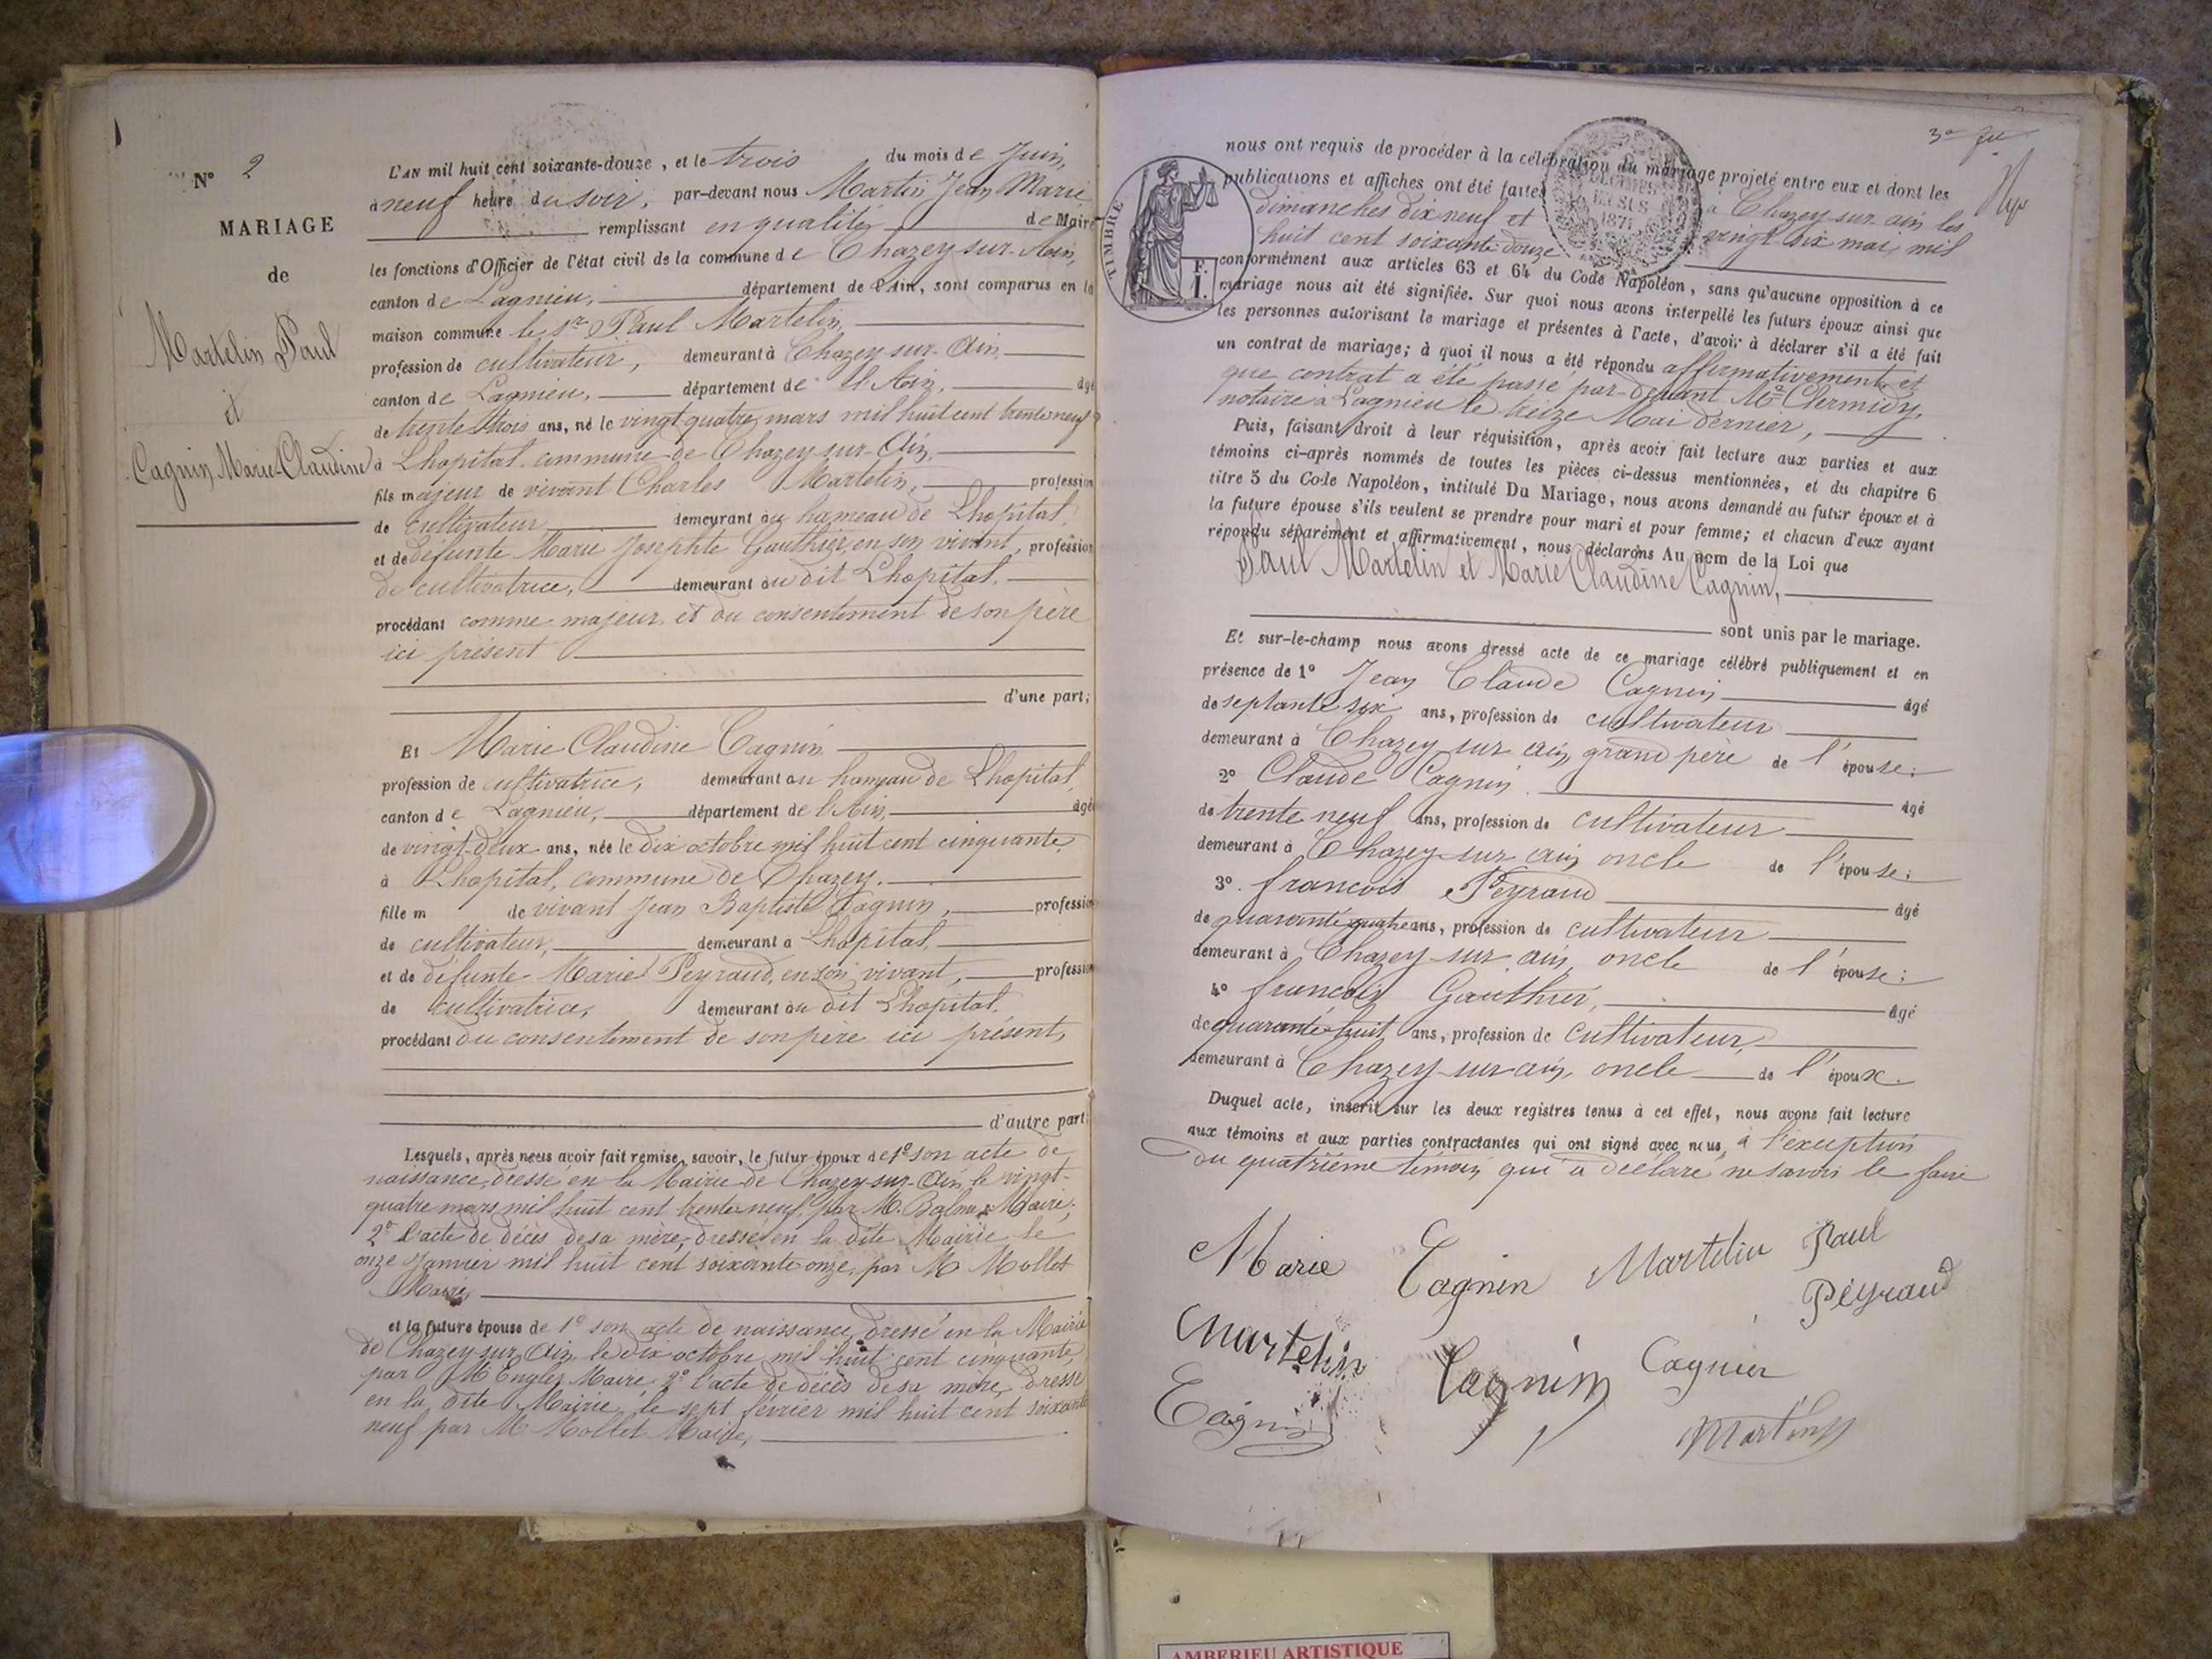 N° 2
MARIAGE
de
Martelin Paul
et
Cagnin Marie Claudine
L'AN mil huit cent soixante-douze, et le trois du mois de Juin,
à neuf heure du soir, par-devant nous Martin Jean Marie
remplissant en qualité de Maire
les fonctions d'Officier de l'état civil de la commune de Chazey-sur-Ain,
canton de Lagnieu, département de l'Ain, sont comparus en la
maison commune le Sr Paul Martelin,
profession de cultivateur, demeurant à Chazey-sur-Ain,
canton de Lagnieu, département de l'Ain, âgé
de trente trois ans, né le vingt quatre mars mil huit cent trente neuf
à Lhopital commune de Chazey-sur-Ain,
fils majeur de vivant Charles Martelin, profession
de cultivateur demeurant au hameau de Lhopital,
et de défunte Marie Josephte Gauthier, en son vivant, profession
de cultivatrice, demeurant au dit Lhopital.
procédant comme majeur et du consentement de son père
ici présent
d'une part;
Et Marie Claudine Cagnin
profession de cultivatrice, demeurant au hameau de Lhopital,
canton de Lagnieu, département de l'Ain, âgée
de vingt-deux ans, née le dix octobre mil huit cent cinquante
à Lhopital, commune de Chazey.
fille m de vivant Jean Baptiste Cagnin, profession
de cultivateur, demeurant à Lhopital,
et de défunte Marie Peyraud, en son vivant, profession
de cultivatrice, demeurant au dit Lhopital.
procédant du consentement de son père ici présent,
d'autre part;
Lesquels, après nous avoir fait remise, savoir, le futur époux de 1° son acte de
naissance, dressé en la Mairie de Chazey-sur-Ain, le vingt-
quatre mars mil huit cent trente neuf, par M. Balme Maire;
2° l'acte de décès de sa mère, dressé en la dite Mairie le
onze Janvier mil huit cent soixante onze, par M Mollet
Maire,
et la future épouse de 1° son acte de naissance, dressé en la Mairie
de Chazey sur Ain, le dix octobre mil huit cent cinquante,
par M Maire, 2° l'acte de décès de sa mère, dressé
en la dite Mairie, le sept février mil huit cent soixante
neuf par M Mollet Maire,
3e
nous ont requis de procéder à la célébration du mariage projeté entre eux et dont les
publications et affiches ont été faites à Chazey-sur-ain les
dimanches dix neuf et vingt six mai, mil
huit cent soixante douze
TIMBRE
F.
1.
2 DÉCIMES
EN SUS
1871
conformément aux articles 63 et 64 du Code Napoléon, sans qu'aucune opposition à ce
mariage nous ait été signifiée. Sur quoi nous avons interpellé les futurs époux ainsi que
les personnes autorisant le mariage et présentes à l'acte, d'avoir à déclarer s'il a été fait
un contrat de mariage; à quoi il nous a été répondu affirmativement et
que contrat a été passé par-devant Me Clermidy,
notaire à Lagnieu le treize Mai dernier,
Puis, faisant droit à leur réquisition, après avoir fait lecture aux parties et aux
témoins ci-après nommés de toutes les pièces ci-dessus mentionnées, et du chapitre 6
titre 5 du Code Napoléon, intitulé Du Mariage, nous avons demandé au futur époux et à
la future épouse s'ils veulent se prendre pour mari et pour femme; et chacun d'eux ayant
répondu séparément et affirmativement, nous déclarons Au nom de la Loi que
Paul Martelin et Marie Claudine Cagnin,
sont unis par le mariage.
Et sur-le-champ nous avons dressé acte de ce mariage célébré publiquement et en
présence de 1° Jean Claude Cagnin âgé
de septante six ans, profession de cultivateur
demeurant à Chazey sur ain, grand père de l'épouse;
2° Claude Cagnin âgé
de trente neuf ans, profession de cultivateur
demeurant à Chazey-sur ain, oncle de l'épouse;
3° francois Peyraud âgé
de quarante quatre ans, profession de cultivateur
demeurant à Chazey-sur ain, oncle de l'épouse;
4° francois Gauthier, âgé
de quarante-huit ans, profession de cultivateur,
demeurant à Chazey-sur ain, oncle de l'époux.
Duquel acte, inscrit sur les deux registres tenus à cet effet, nous avons fait lecture
aux témoins et aux parties contractantes qui ont signé avec nous, à l'exception
du quatrième témoin qui a déclaré ne savoir le faire
Marie Cagnin Martelin Paul
Peyraud
Martelin Cagnin Cagnin
Cagnin Martin
AMBERIEU ARTISTIQUE